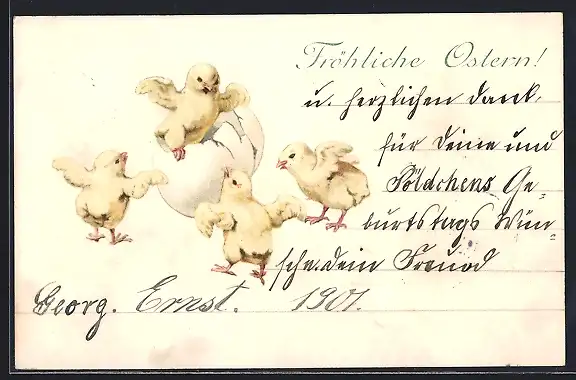 Fröhliche Ostern!
u. herzlichen Dank,
für Deine und
Pöldchens Ge-
burtstags Wün-
sche. Dein Freund
Georg. Ernst. 1901.